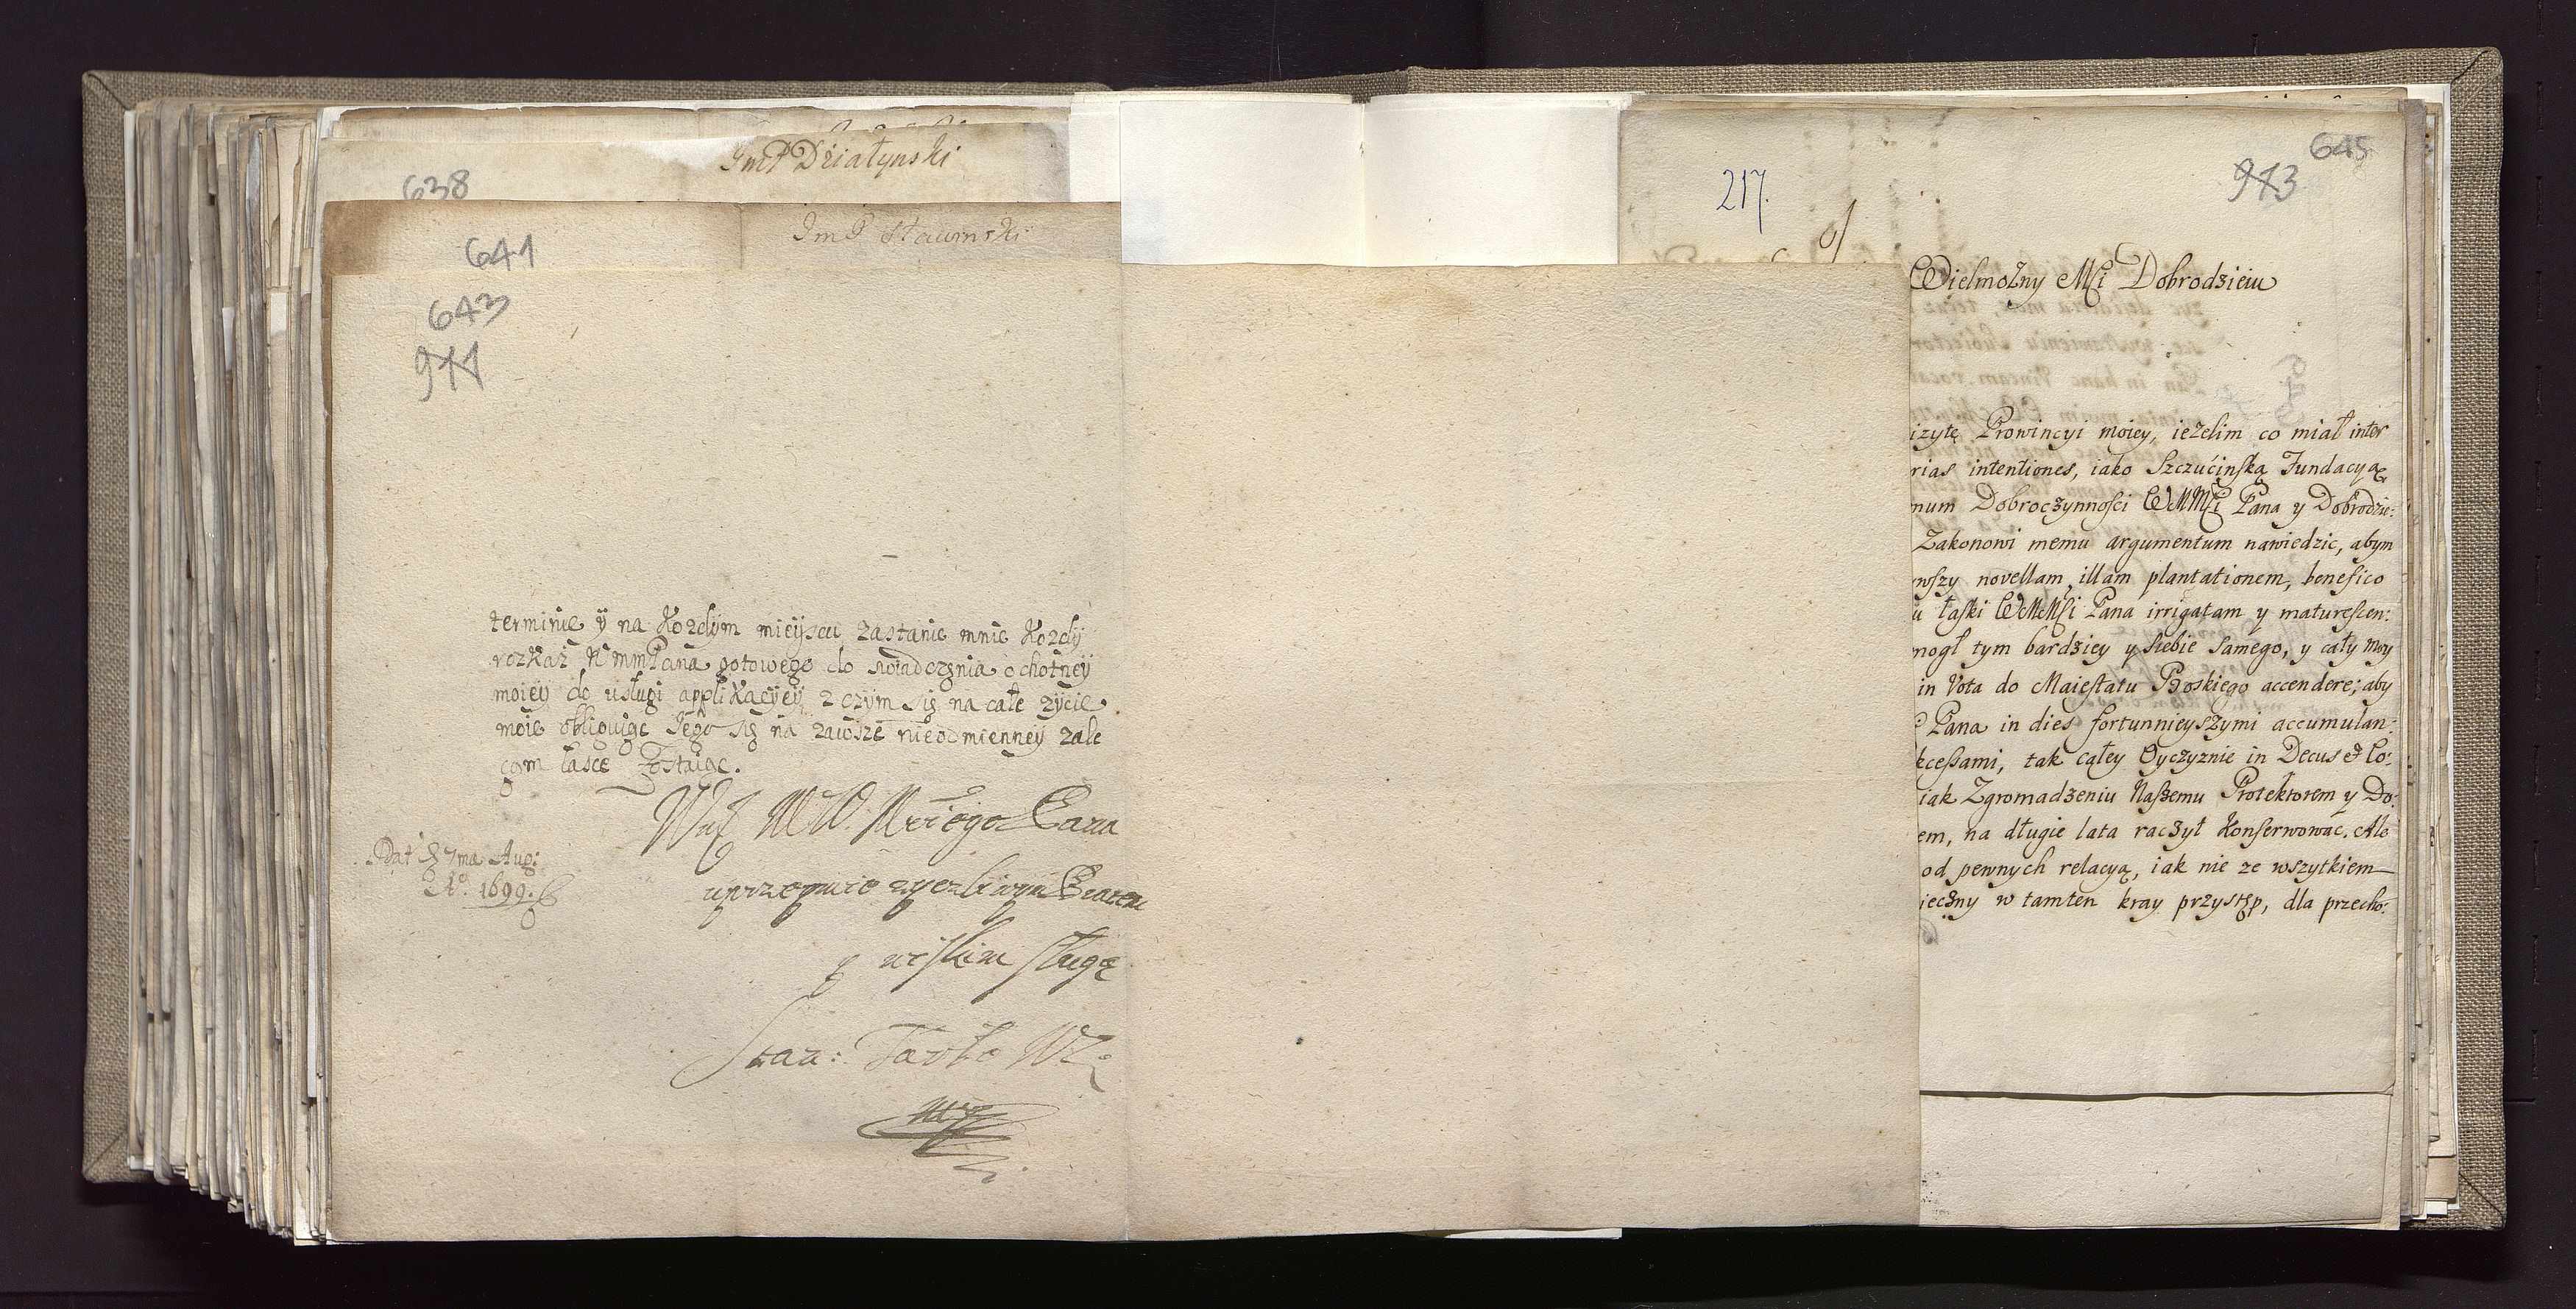 JmP Działynski
638
JmP Sławinski
641
643
911
terminie ÿ na Kozdÿm mieÿscu zastanie mnie Kozdÿ
rozkaz WmmPana gotowego do swiadczęnia ochotneÿ
moieÿ do usługi applikacÿeÿ, z czÿm się na całe zÿcie
moie obliguiąc Jego się na zawsze nieodmienneÿ zale
cam łasce Zostaiąc.
Pana
uprzeymie zyczliwym Bratem
y niskim sługą
Dat 7ma Aug:
Ao. 1699.
Stan: Tarło
217.
645
913
Wielmożny Mśi Dobrodzieiu
izytę Prowincyi moiey, ieżelim co miał inter
rias intentiones, iako Szczućinską Fundacyą
num Dobroczynnośći WMMśi Pana y Dobrodzie:
Zakonowi memu argumentum nawiedzic, abym
wszy novellam illam plantationem, benefico
u łaski WMMśi Pana irrigatam y maturescen:
mogł tym bardziey y siebie samego, y cały moy
in Vota do Maiestatu Boskiego accendere; aby
Pana in dies fortunnieyszymi accumulan:
kcessami, tak całey Oyczyznie in Decus et Co:
iak Zgromadzeniu Naszemu Protektorem y Do:
em, na długie lata raczył Konserwować. Ale
od pewnych relacyą, iak nie ze wszytkiem
ieczny w tamten kray przystęp, dla przecho: